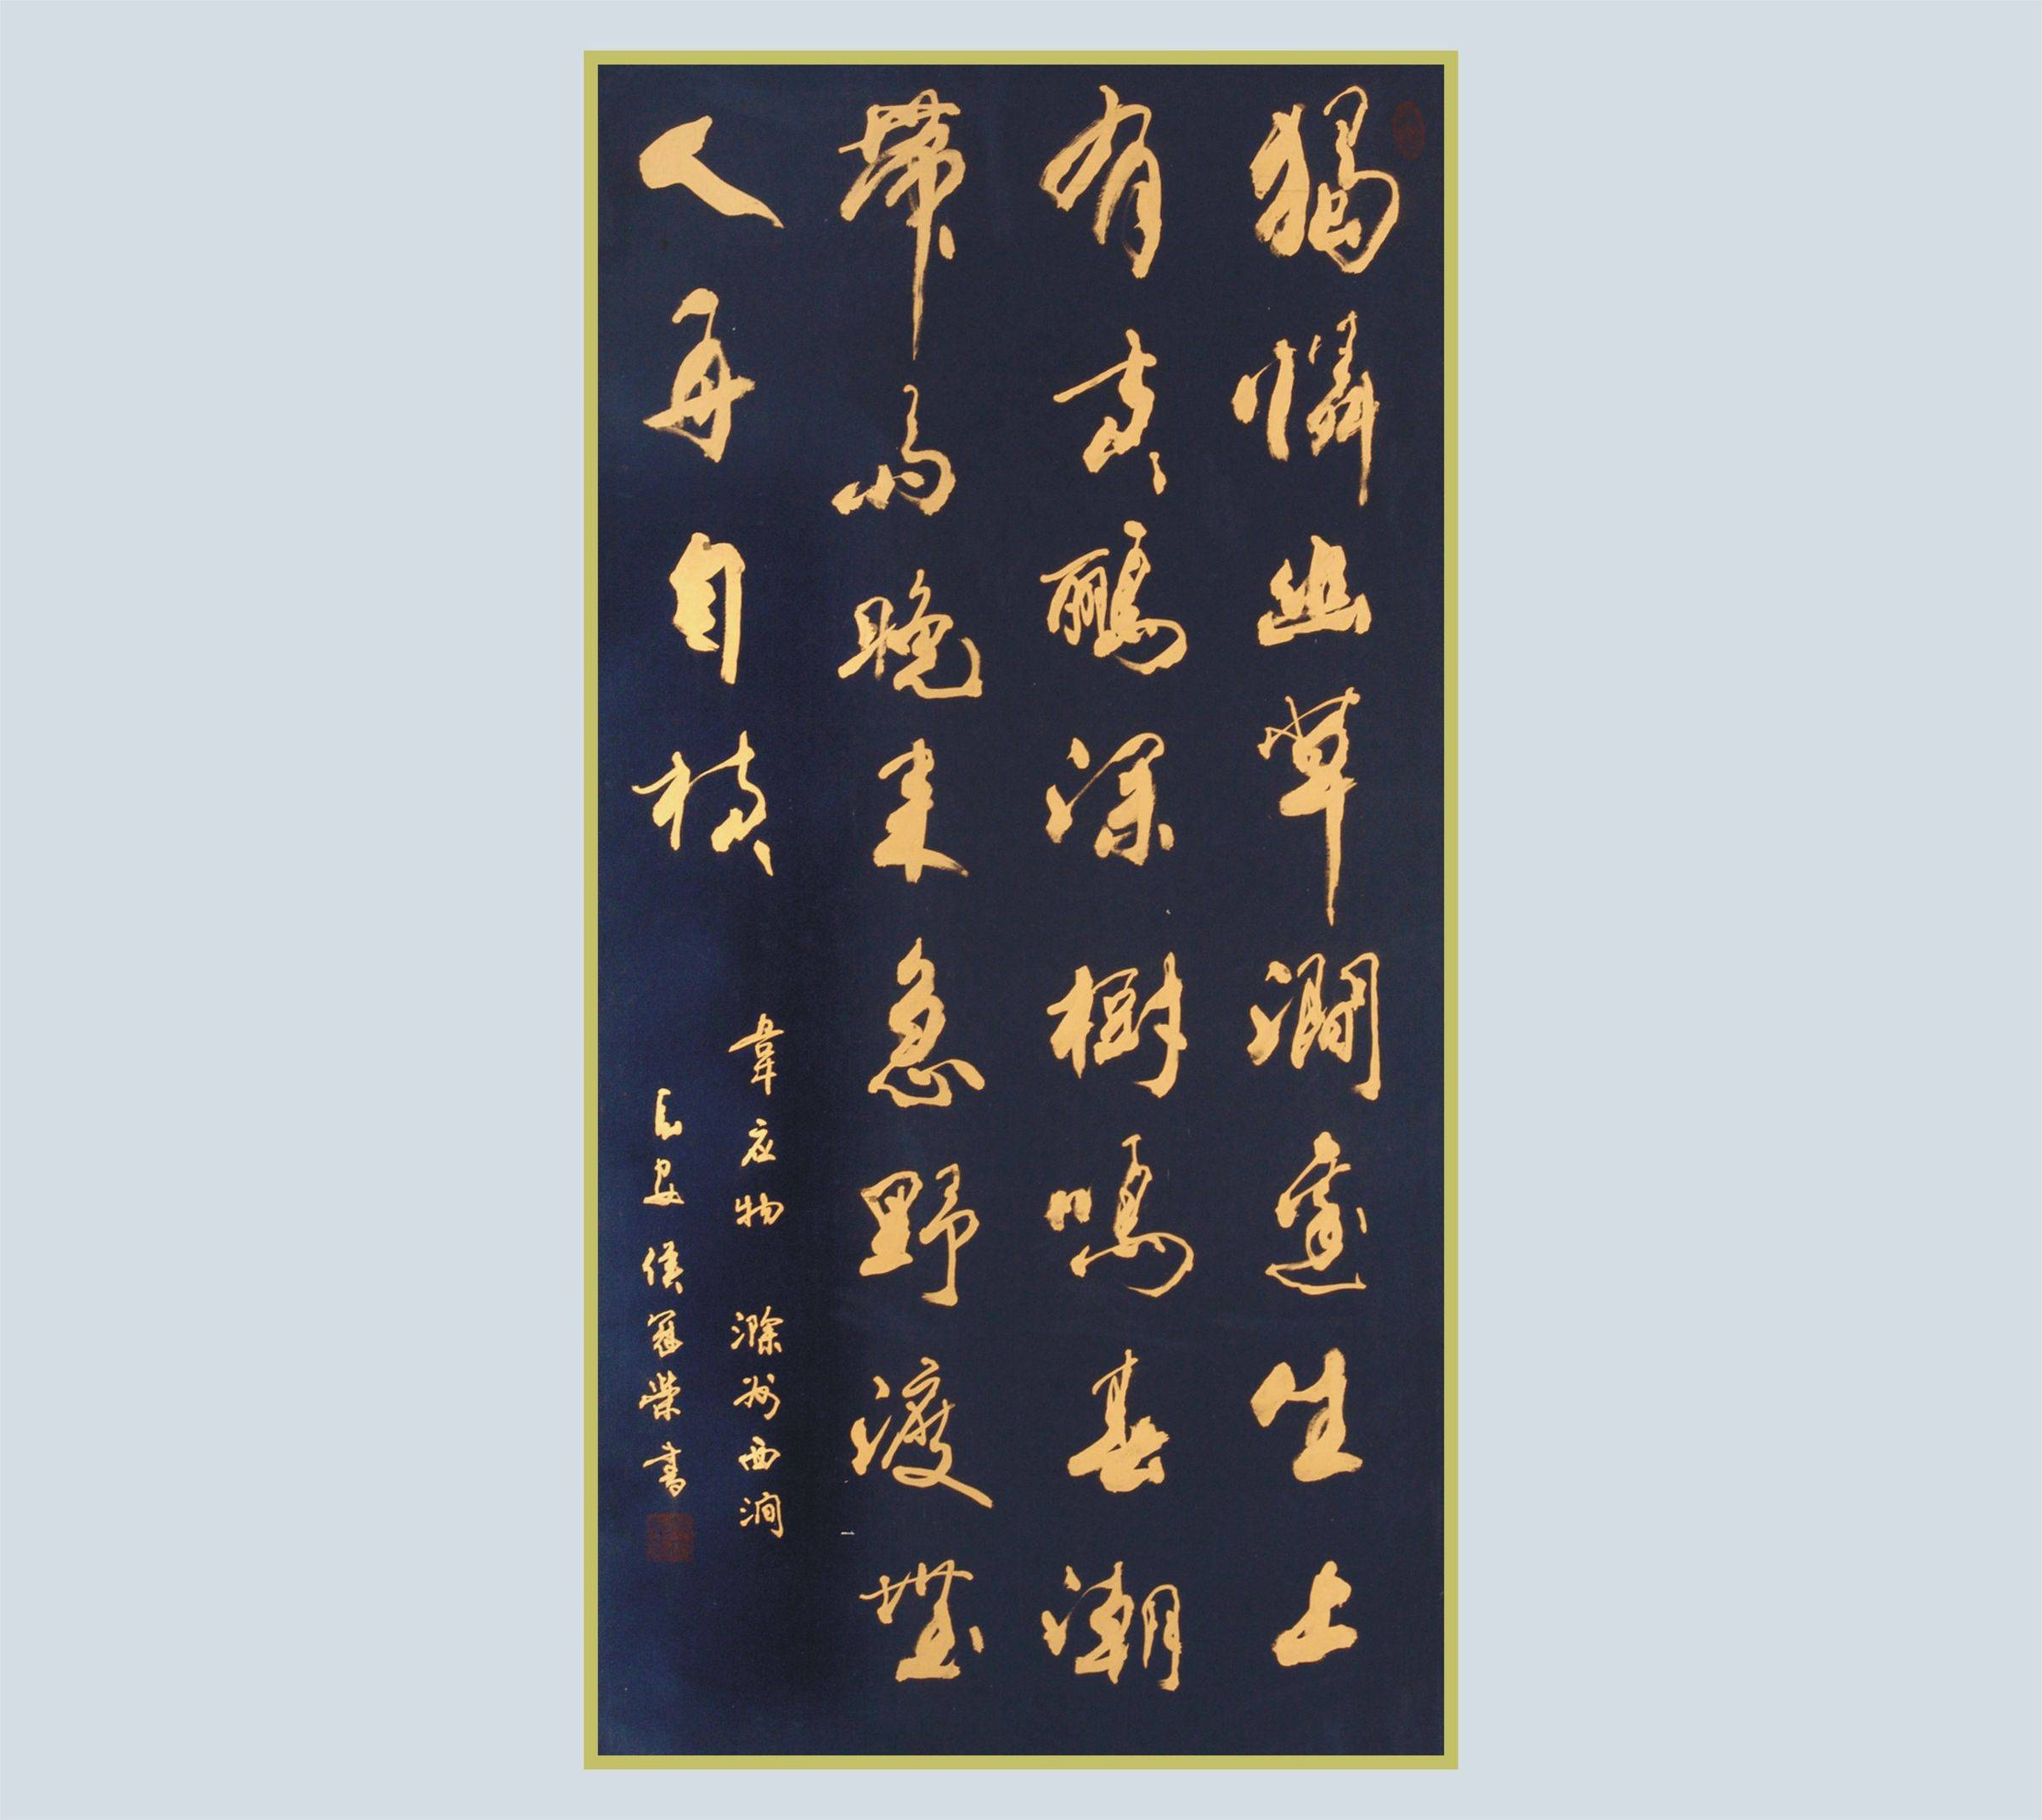 獨憐幽草澗邊生上
有黃鸝深樹鳴春潮
帶雨晚來急野渡無
人舟自橫
韋应物 滁州西澗
長安 侯冠榮書